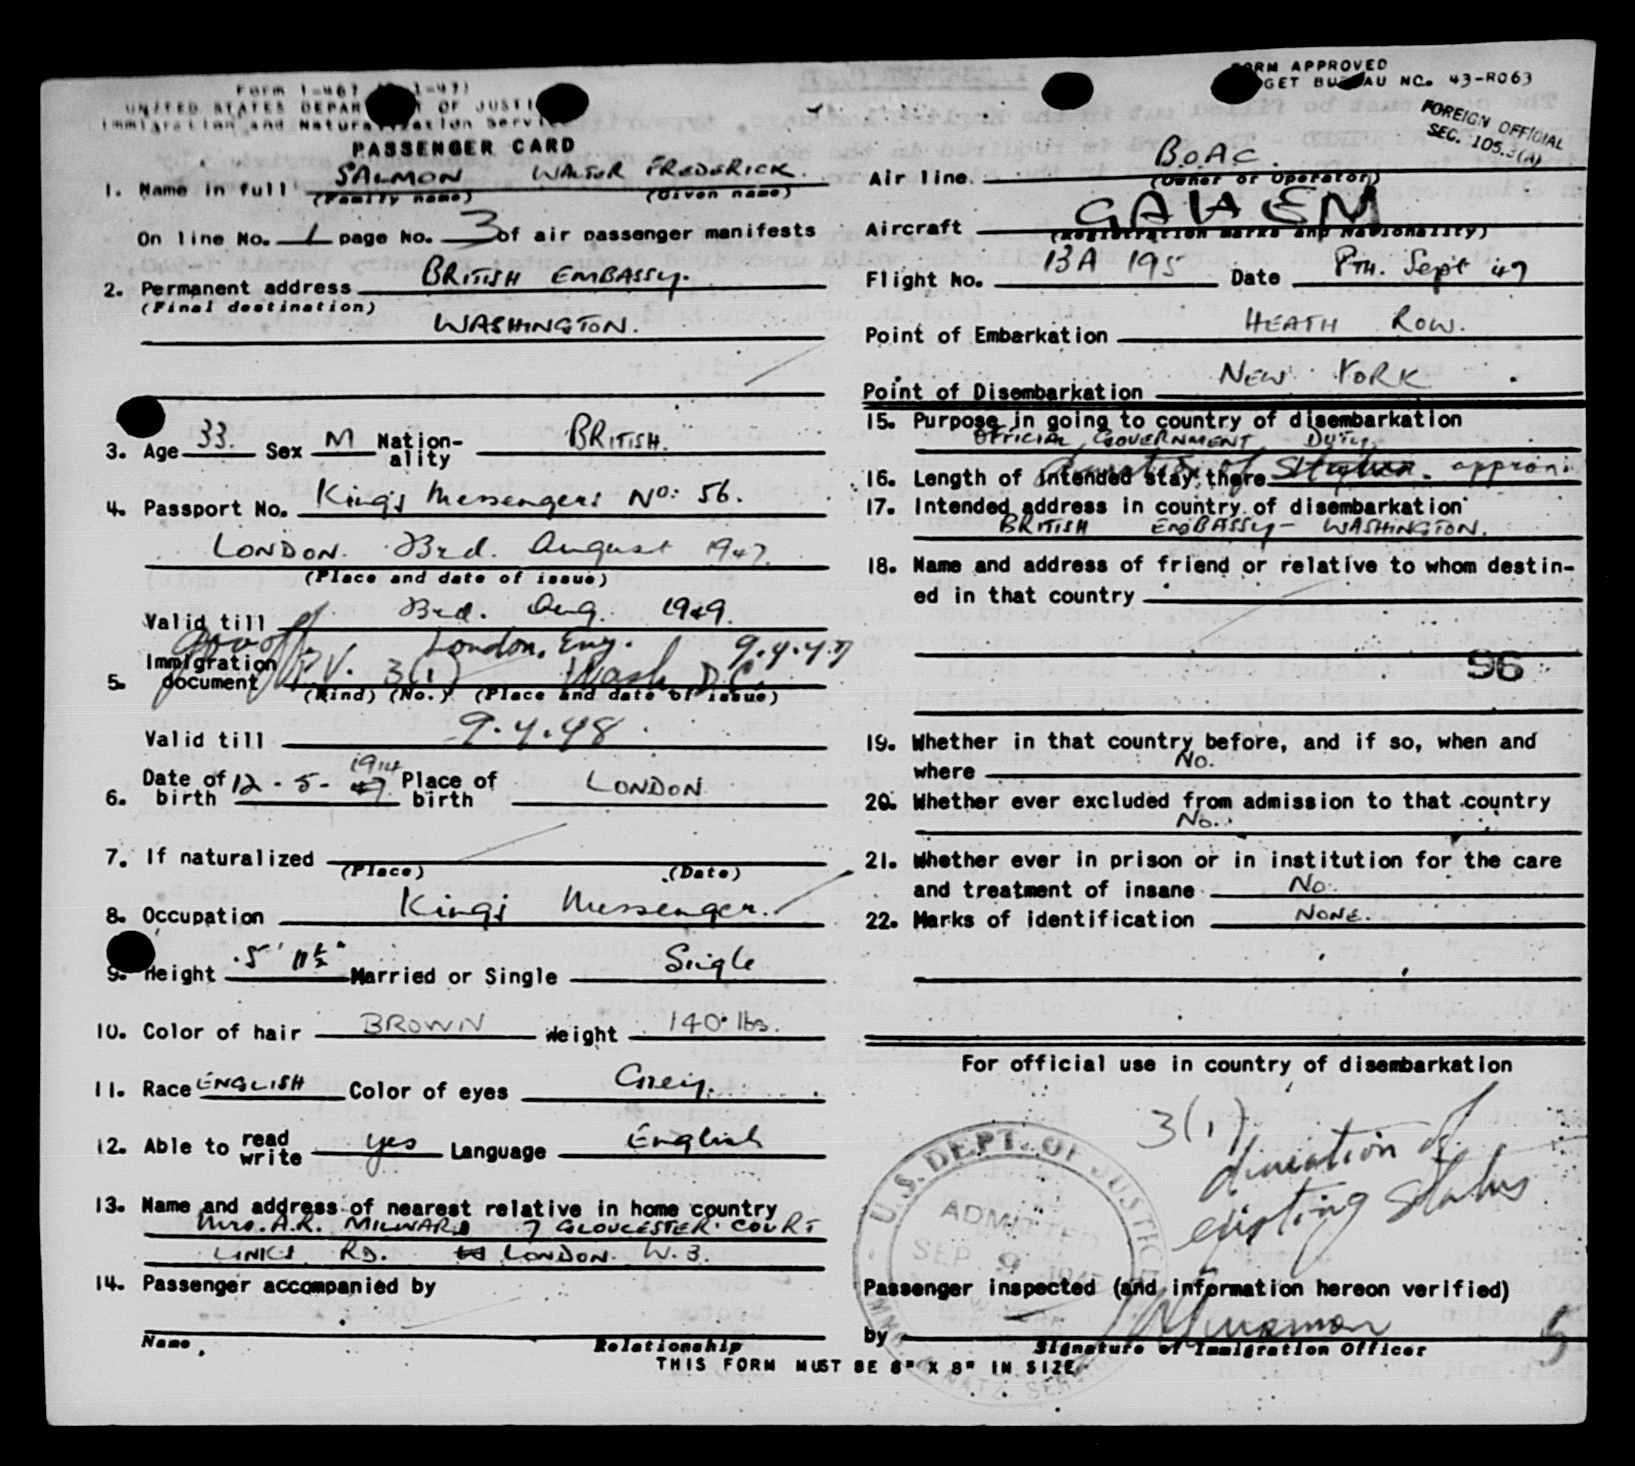 Form I-467 ( -1-47)
UNITED STATES DEPAR T OF JUSTI
Immigration and Naturalization Servi
PASSENGER CARD
1. Name in full SALMON WALTER FREDERICK.
(Family name) (Given name)
On line No. 1 page No. 3 of air passenger manifests
2. Permanent address BRITISH EMBASSY.
(Final destination)
WASHINGTON.
3. Age 33. Sex M Nation-ality BRITISH.
4. Passport No. King's Messengers No: 56.
LONDON. 23rd. August 1947.
(Place and date of issue)
Valid till 23rd. Aug. 1949.
London, Eng. 9.4.47
5. Immigration document P.V. 3(1) Wash D.C.
(Kind) (No.) (Place and date of issue)
Valid till 9.4.48
6. Date of birth 12-5-1914 Place of birth LONDON
7. If naturalized
(Place) (Date)
8. Occupation King's Messenger.
9. Height 5' 11½" Married or Single Single
10. Color of hair BROWN Weight 140 lbs.
11. Race ENGLISH Color of eyes Grey.
12. Able to read write yes Language English
13. Name and address of nearest relative in home country
Mrs. A.R. MILWARD 7 GLOUCESTER COURT
LINKS RD. LONDON. W.3.
14. Passenger accompanied by
Name Relationship
THIS FORM MUST BE 8" X 8" IN SIZE
FORM APPROVED
GET BU AU NO. 43-R063
FOREIGN OFFICIAL
SEC. 105.3(A)
Air line B.O.A.C.
(Owner or Operator)
Aircraft GAHEM
(Registration marks and Nationality)
Flight No. BA 195 Date 8TH. Sept 47
Point of Embarkation HEATH ROW.
Point of Disembarkation NEW YORK
15. Purpose in going to country of disembarkation
OFFICIAL GOVERNMENT DUTY.
16. Length of intended stay there duration of Status approx
17. Intended address in country of disembarkation
BRITISH EMBASSY - WASHINGTON.
18. Name and address of friend or relative to whom destin-
ed in that country
96
19. Whether in that country before, and if so, when and
where No.
20. Whether ever excluded from admission to that country
No.
21. Whether ever in prison or in institution for the care
and treatment of insane No.
22. Marks of identification NONE.
For official use in country of disembarkation
3(1)
duration of
existing status
U.S. DEPT. OF JUSTICE
ADMITTED
SEP 9 1947
Passenger inspected (and information hereon verified)
by
Signature of Immigration Officer
5